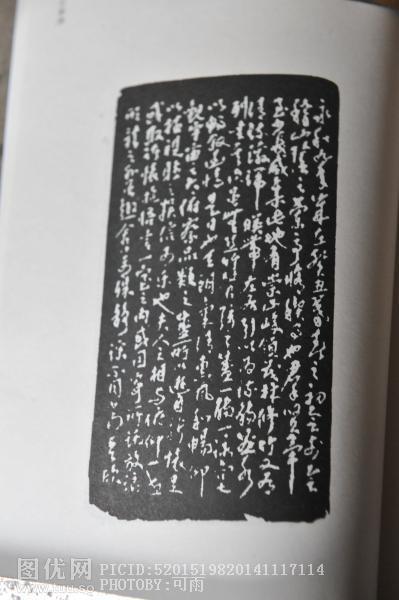 永和九年歲在癸丑暮春之初會于會
稽山陰之蘭亭脩稧事也群賢畢
至少長咸集此地有崇山峻領茂林脩竹又有
清流激湍暎帶左右引以為流觴曲水
列坐其次雖無絲竹管弦之盛一觴一詠亦足
以暢敘幽情是日也天朗氣清惠風和暢仰
觀宇宙之大俯察品類之盛所以遊目騁懷足
以極視聽之娛信可樂也夫人之相與俯仰一世
或取諸懷抱悟言一室之內或因寄所託放浪
形骸之外雖趣舍萬殊靜躁不同當其欣
图优网 PICID:5201519820141117114
uuuu.so PHOTOBY:可雨